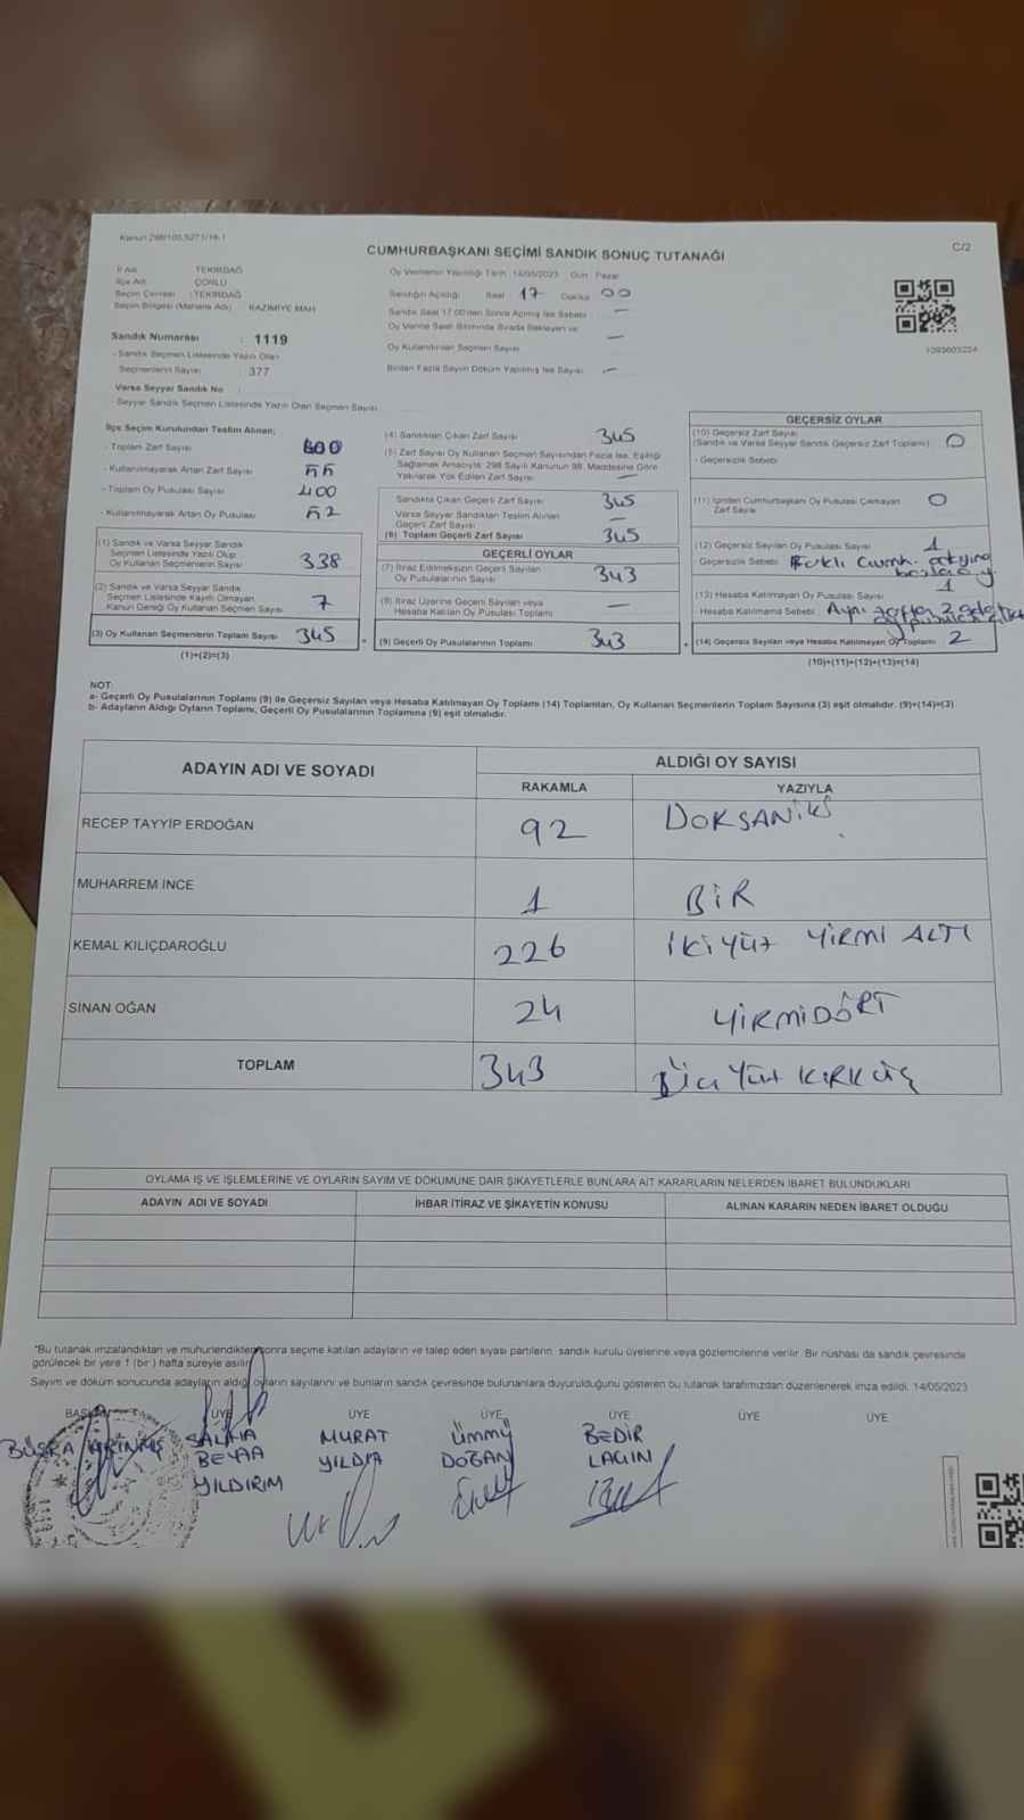 Kanun 298/105,5271/16-1
C/2
CUMHURBAŞKANI SEÇİMİ SANDIK SONUÇ TUTANAĞI
İl Adı : TEKİRDAĞ
İlçe Adı : ÇORLU
Seçim Çevresi : TEKİRDAĞ
Seçim Bölgesi (Mahalle Adı) : KAZIMİYE MAH
Sandık Numarası : 1119
- Sandık Seçmen Listesinde Yazılı Olan
Seçmenlerin Sayısı : 377
Varsa Seyyar Sandık No :
- Seyyar Sandık Seçmen Listesinde Yazılı Olan Seçmen Sayısı
Oy Vermenin Yapıldığı Tarih : 14/05/2023 Gün : Pazar
Sandığın Açıldığı Saat : 17 Dakika : 00
Sandık Saat 17.00'den Sonra Açılmış İse Sebebi —
Oy Verme Saati Bitiminde Sırada Bekleyen ve
Oy Kullandırılan Seçmen Sayısı —
Birden Fazla Sayım Döküm Yapılmış İse Sayısı —
1093603224
İlçe Seçim Kurulundan Teslim Alınan;
- Toplam Zarf Sayısı 400
- Kullanılmayarak Artan Zarf Sayısı 55
- Toplam Oy Pusulası Sayısı 400
- Kullanılmayarak Artan Oy Pusulası 52
(1) Sandık ve Varsa Seyyar Sandık
Seçmen Listesinde Yazılı Olup
Oy Kullanan Seçmenlerin Sayısı 338
(2) Sandık ve Varsa Seyyar Sandık
Seçmen Listesinde Kayıtlı Olmayan
Kanun Gereği Oy Kullanan Seçmen Sayısı 7
(3) Oy Kullanan Seçmenlerin Toplam Sayısı 345
(1)+(2)=(3)
(4) Sandıktan Çıkan Zarf Sayısı 345
(5) Zarf Sayısı Oy Kullanan Seçmen Sayısından Fazla İse, Eşitliği
Sağlamak Amacıyla; 298 Sayılı Kanunun 98. Maddesine Göre
Yakılarak Yok Edilen Zarf Sayısı —
Sandıkta Çıkan Geçerli Zarf Sayısı 345
Varsa Seyyar Sandıktan Teslim Alınan
Geçerli Zarf Sayısı —
(6) Toplam Geçerli Zarf Sayısı 345
GEÇERLİ OYLAR
(7) İtiraz Edilmeksizin Geçerli Sayılan
Oy Pusulalarının Sayısı 343
(8) İtiraz Üzerine Geçerli Sayılan veya
Hesaba Katılan Oy Pusulası Toplamı —
(9) Geçerli Oy Pusulalarının Toplamı 343
GEÇERSİZ OYLAR
(10) Geçersiz Zarf Sayısı
(Sandık ve Varsa Seyyar Sandık Geçersiz Zarf Toplamı) 0
- Geçersizlik Sebebi
(11) İçinden Cumhurbaşkanı Oy Pusulası Çıkmayan
Zarf Sayısı 0
(12) Geçersiz Sayılan Oy Pusulası Sayısı 1
Geçersizlik Sebebi
(13) Hesaba Katılmayan Oy Pusulası Sayısı 1
Hesaba Katılmama Sebebi Aynı zarftan 2 adet
(14) Geçersiz Sayılan veya Hesaba Katılmayan Oy Toplamı 2
(10)+(11)+(12)+(13)=(14)
NOT:
a- Geçerli Oy Pusulalarının Toplamı (9) ile Geçersiz Sayılan veya Hesaba Katılmayan Oy Toplamı (14) Toplamları, Oy Kullanan Seçmenlerin Toplam Sayısına (3) eşit olmalıdır. (9)+(14)=(3)
b- Adayların Aldığı Oyların Toplamı, Geçerli Oy Pusulalarının Toplamına (9) eşit olmalıdır.
ADAYIN ADI VE SOYADI
ALDIĞI OY SAYISI
RAKAMLA YAZIYLA
RECEP TAYYİP ERDOĞAN 92 DOKSANİKİ
MUHARREM İNCE 1 BİR
KEMAL KILIÇDAROĞLU 226 İKİYÜZ YİRMİ ALTI
SİNAN OĞAN 24 YİRMİDÖRT
TOPLAM 343 ÜÇYÜZ KIRKÜÇ
OYLAMA İŞ VE İŞLEMLERİNE VE OYLARIN SAYIM VE DÖKÜMÜNE DAİR ŞİKAYETLERLE BUNLARA AİT KARARLARIN NELERDEN İBARET BULUNDUKLARI
ADAYIN ADI VE SOYADI İHBAR İTİRAZ VE ŞİKAYETİN KONUSU ALINAN KARARIN NEDEN İBARET OLDUĞU
"Bu tutanak imzalandıktan ve mühürlendikten sonra seçime katılan adayların ve talep eden siyasi partilerin, sandık kurulu üyelerine veya gözlemcilerine verilir. Bir nüshası da sandık çevresinde
görülecek bir yere 1 (bir) hafta süreyle asılır.
Sayım ve döküm sonucunda adayların aldığı oyların sayılarını ve bunların sandık çevresinde bulunanlara duyurulduğunu gösteren bu tutanak tarafımızdan düzenlenerek imza edildi. 14/05/2023
BAŞKAN ÜYE ÜYE ÜYE ÜYE ÜYE ÜYE
BÜŞRA
SALİHA BEYZA YILDIRIM
MURAT YILDIZ
ÜMMÜ DOĞAN
BEDİR LAÇIN